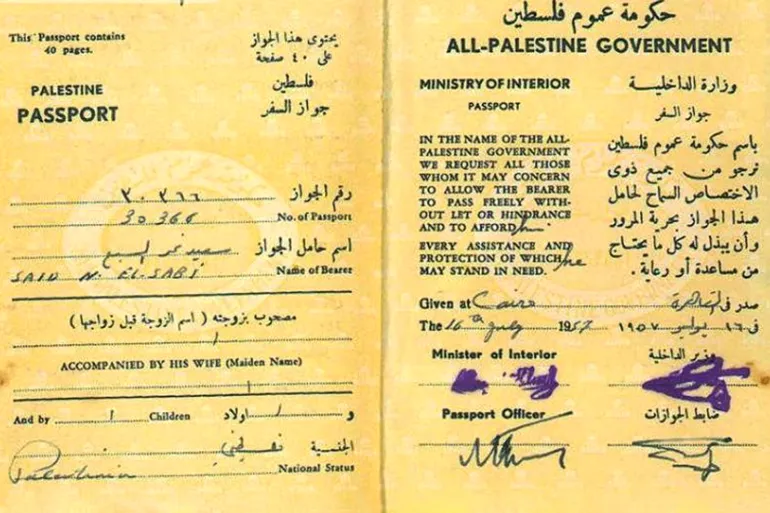 This Passport contains
40 pages.
يحتوى هذا الجواز
على ٤٠ صفحة
PALESTINE
PASSPORT
فلسطين
جواز السفر
رقم الجواز ٣٠٣٦٦
30366 No. of Passport
اسم حامل الجواز سعيد السبع
SAID N. EL-SABI Name of Bearer
مصحوب بزوجته ( اسم الزوجة قبل زواجها )
/
ACCOMPANIED BY HIS WIFE (Maiden Name)
/
And by / Children و / اولاد
الجنسية
Palestinian National Status
حكومة عموم فلسطين
ALL-PALESTINE GOVERNMENT
MINISTRY OF INTERIOR
PASSPORT
وزارة الداخلية
جواز السفر
IN THE NAME OF THE ALL-
PALESTINE GOVERNMENT
WE REQUEST ALL THOSE
WHOM IT MAY CONCERN
TO ALLOW THE BEARER
TO PASS FREELY WITH-
OUT LET OR HINDRANCE
AND TO AFFORD him
EVERY ASSISTANCE AND
PROTECTION OF WHICH he
MAY STAND IN NEED.
باسم حكومة عموم فلسطين
نرجو من جميع ذوى
الاختصاص السماح لحامل
هذا الجواز بحرية المرور
وأن يبذل له كل ما يحتاج
من مساعدة أو رعاية .
Given at Cairo صدر فى القاهرة
The 16th July 1957 فى ١٦ يوليو ١٩٥٧
Minister of Interior وزير الداخلية
Passport Officer ضابط الجوازات